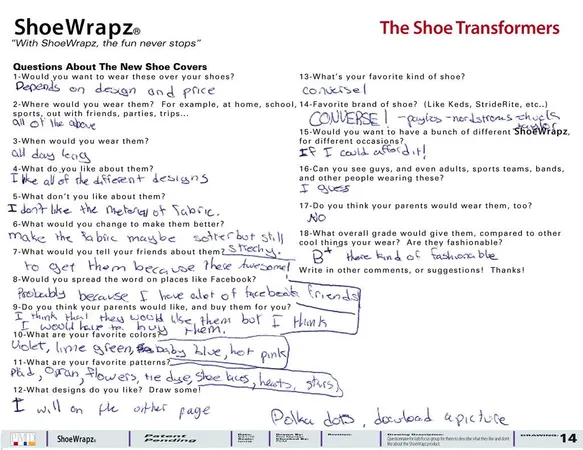 ShoeWrapz®
The Shoe Transformers
"With ShoeWrapz, the fun never stops"
Questions About The New Shoe Covers
1-Would you want to wear these over your shoes?
Depends on design and price
2-Where would you wear them? For example, at home, school,
sports, out with friends, parties, trips...
all of the above
3-When would you wear them?
all day long
4-What do you like about them?
I like all of the different designs
5-What don't you like about them?
I don't like the of fabric.
6-What would you change to make them better?
make the fabric maybe softer but still
strechy.
7-What would you tell your friends about them?
to get them because there awesome!
8-Would you spread the word on places like Facebook?
Probably because I have alot of facebook friends
9-Do you think your parents would like, and buy them for you?
I think that they would like them but I think
I would have to buy them.
10-What are your favorite colors?
violet, lime green, baby blue, hot pink
11-What are your favorite patterns?
Plaid, flowers, tie dye, shoe laces, hearts, stars
12-What designs do you like? Draw some!
I will on the other page
Polka dots, download a picture
13-What's your favorite kind of shoe?
converse!
14-Favorite brand of shoe? (Like Keds, StrideRite, etc..)
CONVERSE! - payles - nordstroms - chuck
taylor
15-Would you want to have a bunch of different ShoeWrapz,
for different occasions?
If I could afford it!
16-Can you see guys, and even adults, sports teams, bands,
and other people wearing these?
I guess
17-Do you think your parents would wear them, too?
NO
18-What overall grade would you give them, compared to other
cool things your wear? Are they fashionable?
B+ there kind of fashionable
Write in other comments, or suggestions! Thanks!
ShoeWrapz®
Patent
Pending
DRAWING:
14